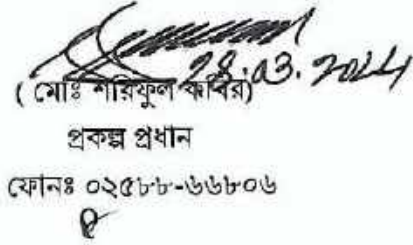 28.03.2024
( মোঃ শরিফুল কবির)
প্রকল্প প্রধান
ফোনঃ ০২৫৮৮-৬৬৮০৬